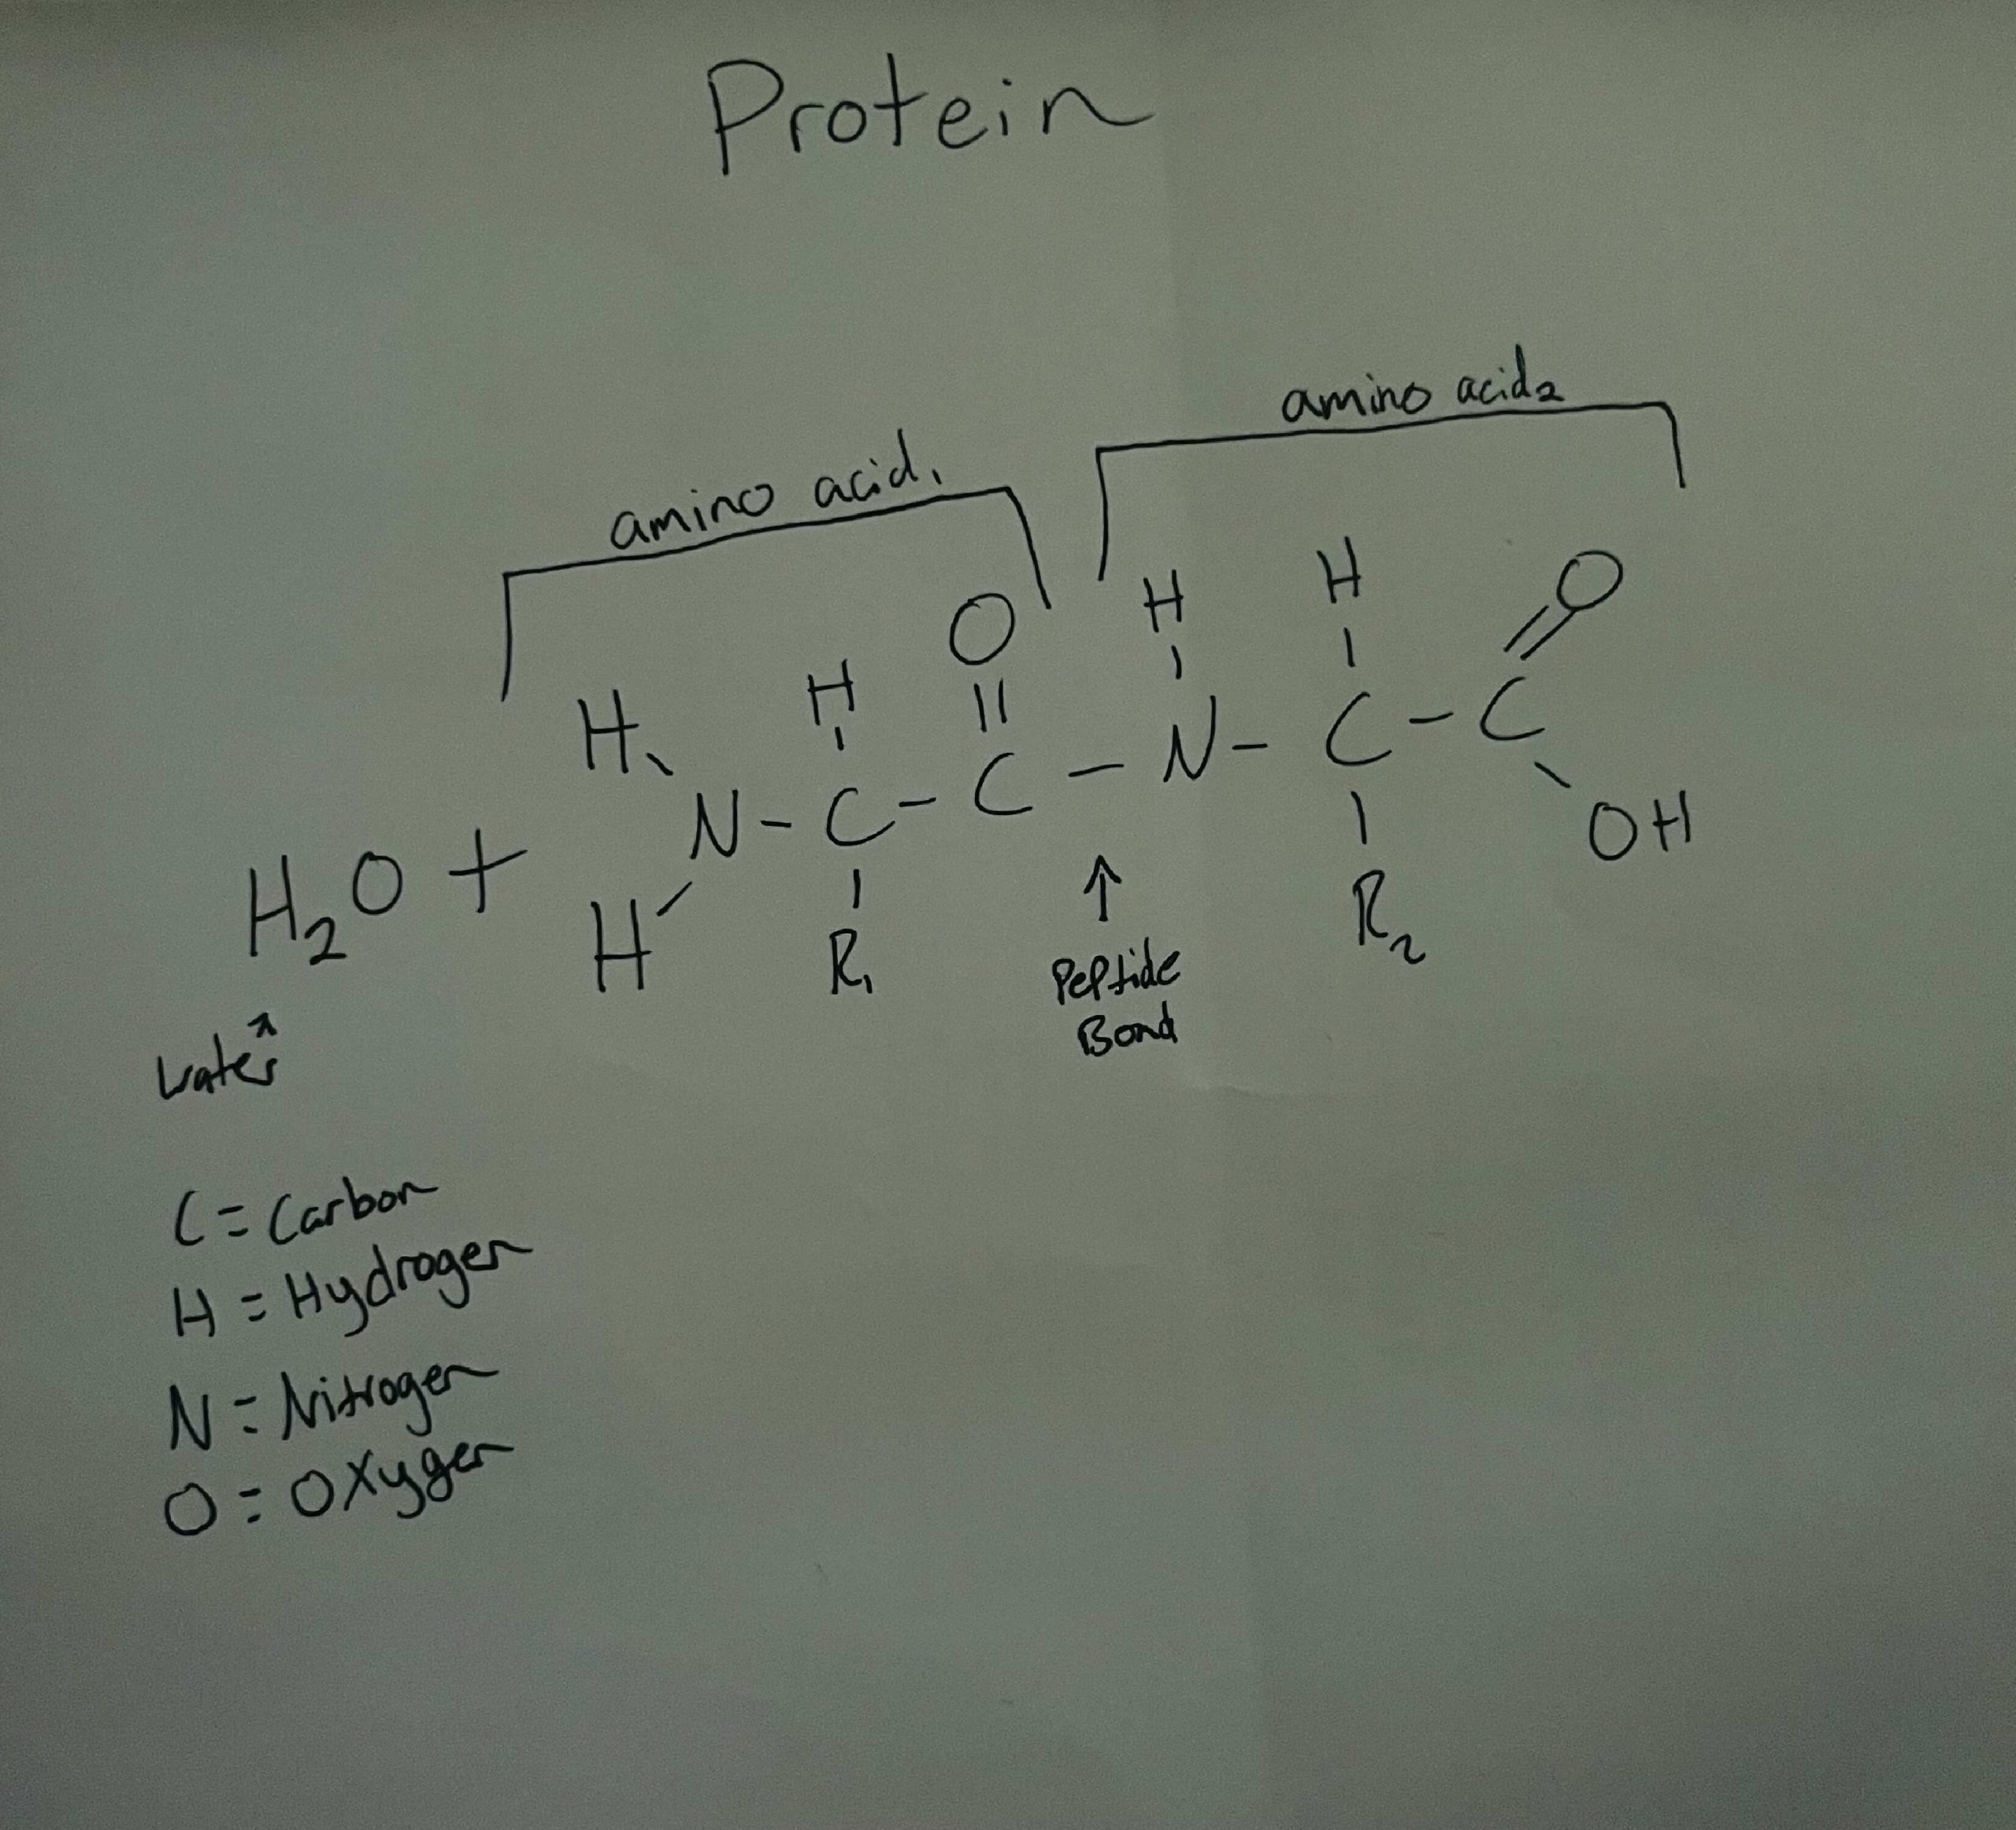 Protein
amino acid2
amino acid1
H H O
H H O
H N - C - C - N - C - C
H2O + H R1 R2 OH
Peptide
Bond
Water
C = Carbon
H = Hydrogen
N = Nitrogen
O = Oxygen